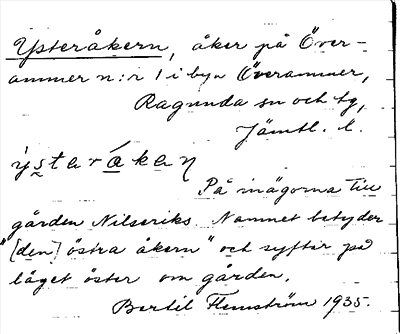 Ysteråkern, åker på Över-
ammer n:r 1 i byn Överammer,
Ragunda sn och tg,
Jämtl. l.
ýstaråkaɳ
På inägorna till
gården Nilseriks. Namnet betyder
"[den] östra åkern" och syftar på
läget öster om gården.
Bertil Flemström 1935.